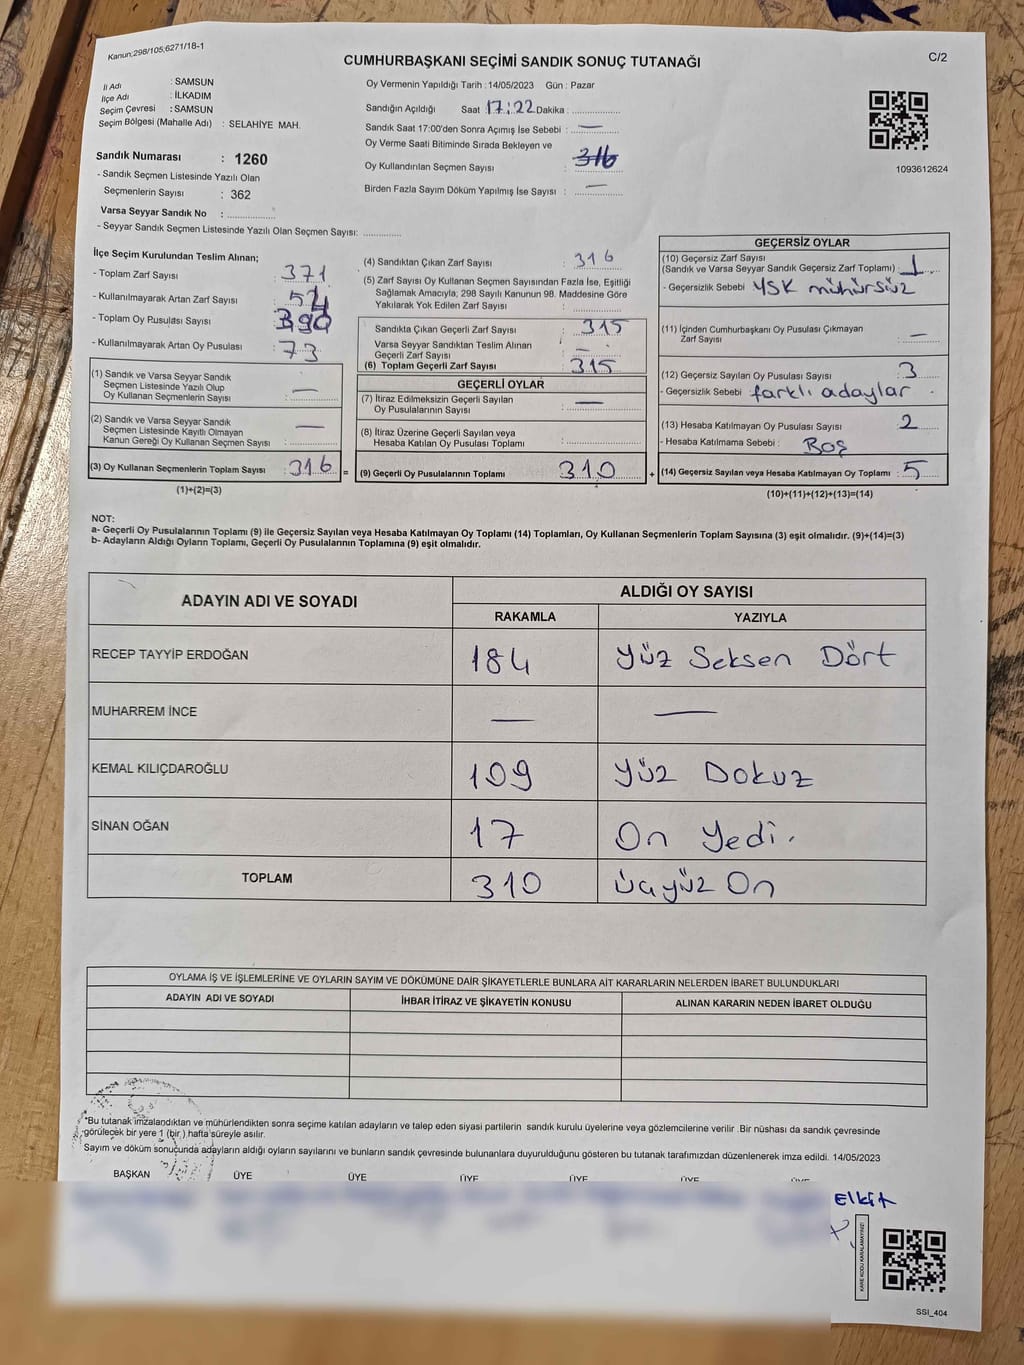 Kanun:298/105;6271/18-1
C/2
CUMHURBAŞKANI SEÇİMİ SANDIK SONUÇ TUTANAĞI
İl Adı : SAMSUN
İlçe Adı : İLKADIM
Seçim Çevresi : SAMSUN
Seçim Bölgesi (Mahalle Adı) : SELAHİYE MAH.
Sandık Numarası : 1260
- Sandık Seçmen Listesinde Yazılı Olan
Seçmenlerin Sayısı : 362
Varsa Seyyar Sandık No : ...............
- Seyyar Sandık Seçmen Listesinde Yazılı Olan Seçmen Sayısı: ............
Oy Vermenin Yapıldığı Tarih : 14/05/2023 Gün : Pazar
Sandığın Açıldığı Saat : 17:22 Dakika : ...............
Sandık Saat 17:00'den Sonra Açımış İse Sebebi : —
Oy Verme Saati Bitiminde Sırada Bekleyen ve
Oy Kullandırılan Seçmen Sayısı : 316
Birden Fazla Sayım Döküm Yapılmış İse Sayısı : —
1093612624
İlçe Seçim Kurulundan Teslim Alınan;
- Toplam Zarf Sayısı : 371
- Kullanılmayarak Artan Zarf Sayısı :
- Toplam Oy Pusulası Sayısı : 390
- Kullanılmayarak Artan Oy Pusulası : 73
(1) Sandık ve Varsa Seyyar Sandık
Seçmen Listesinde Yazılı Olup
Oy Kullanan Seçmenlerin Sayısı : —
(2) Sandık ve Varsa Seyyar Sandık
Seçmen Listesinde Kayıtlı Olmayan
Kanun Gereği Oy Kullanan Seçmen Sayısı : —
(3) Oy Kullanan Seçmenlerin Toplam Sayısı : 316 =
(1)+(2)=(3)
(4) Sandıktan Çıkan Zarf Sayısı : 316
(5) Zarf Sayısı Oy Kullanan Seçmen Sayısından Fazla İse, Eşitliği
Sağlamak Amacıyla; 298 Sayılı Kanunun 98. Maddesine Göre
Yakılarak Yok Edilen Zarf Sayısı :
Sandıkta Çıkan Geçerli Zarf Sayısı : 315
Varsa Seyyar Sandıktan Teslim Alınan
Geçerli Zarf Sayısı : —
(6) Toplam Geçerli Zarf Sayısı : 315
GEÇERLİ OYLAR
(7) İtiraz Edilmeksizin Geçerli Sayılan
Oy Pusulalarının Sayısı : —
(8) İtiraz Üzerine Geçerli Sayılan veya
Hesaba Katılan Oy Pusulası Toplamı :
(9) Geçerli Oy Pusulalarının Toplamı : 310 +
GEÇERSİZ OYLAR
(10) Geçersiz Zarf Sayısı
(Sandık ve Varsa Seyyar Sandık Geçersiz Zarf Toplamı) : 1
- Geçersizlik Sebebi : YSK mühürsüz
(11) İçinden Cumhurbaşkanı Oy Pusulası Çıkmayan
Zarf Sayısı : —
(12) Geçersiz Sayılan Oy Pusulası Sayısı : 3
- Geçersizlik Sebebi : farklı adaylar
(13) Hesaba Katılmayan Oy Pusulası Sayısı : 2
- Hesaba Katılmama Sebebi : Boş
(14) Geçersiz Sayılan veya Hesaba Katılmayan Oy Toplamı : 5
(10)+(11)+(12)+(13)=(14)
NOT:
a- Geçerli Oy Pusulalarının Toplamı (9) ile Geçersiz Sayılan veya Hesaba Katılmayan Oy Toplamı (14) Toplamları, Oy Kullanan Seçmenlerin Toplam Sayısına (3) eşit olmalıdır. (9)+(14)=(3)
b- Adayların Aldığı Oyların Toplamı, Geçerli Oy Pusulalarının Toplamına (9) eşit olmalıdır.
ADAYIN ADI VE SOYADI
ALDIĞI OY SAYISI
RAKAMLA YAZIYLA
RECEP TAYYİP ERDOĞAN 184 Yüz Seksen Dört
MUHARREM İNCE — —
KEMAL KILIÇDAROĞLU 109 Yüz Dokuz
SİNAN OĞAN 17 On Yedi.
TOPLAM 310 üçyüz On
OYLAMA İŞ VE İŞLEMLERİNE VE OYLARIN SAYIM VE DÖKÜMÜNE DAİR ŞİKAYETLERLE BUNLARA AİT KARARLARIN NELERDEN İBARET BULUNDUKLARI
ADAYIN ADI VE SOYADI İHBAR İTİRAZ VE ŞİKAYETİN KONUSU ALINAN KARARIN NEDEN İBARET OLDUĞU
*Bu tutanak imzalandıktan ve mühürlendikten sonra seçime katılan adayların ve talep eden siyasi partilerin sandık kurulu üyelerine veya gözlemcilerine verilir .Bir nüshası da sandık çevresinde
görülecek bir yere 1 (bir ) hafta süreyle asılır.
Sayım ve döküm sonucunda adayların aldığı oyların sayılarını ve bunların sandık çevresinde bulunanlara duyurulduğunu gösteren bu tutanak tarafımızdan düzenlenerek imza edildi. 14/05/2023
BAŞKAN ÜYE ÜYE ÜYE ÜYE ÜYE ÜYE
KARE KODU KARALAMAYINIZ!
SSI_404